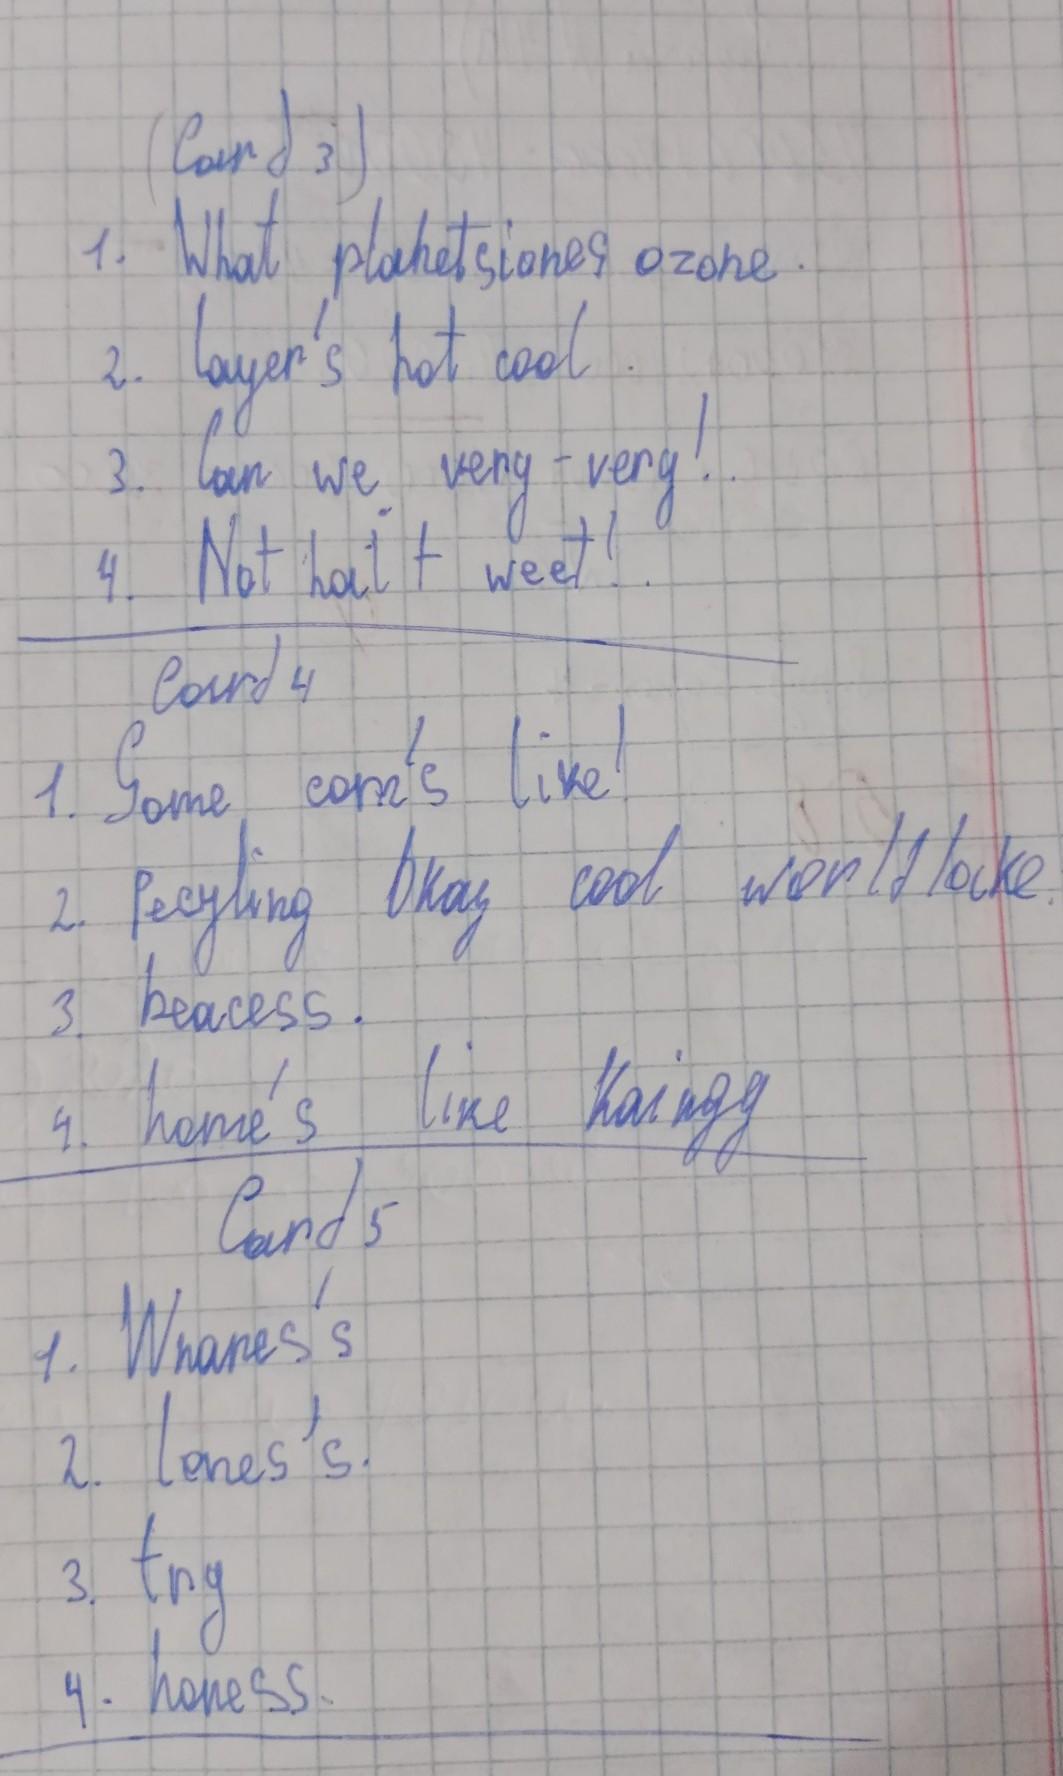 (Card 3)
1. What planetsiones ozone.
2. layer's hot cool.
3. Can we very-very!.
4. Not hait weet!.
Card 4
1. Some com's like!
2. Recyling Okay cool world locke.
3. beacess.
4. home's like Kaingg
Card 5
1. Whanes's
2. lones's.
3. try
4. honess.